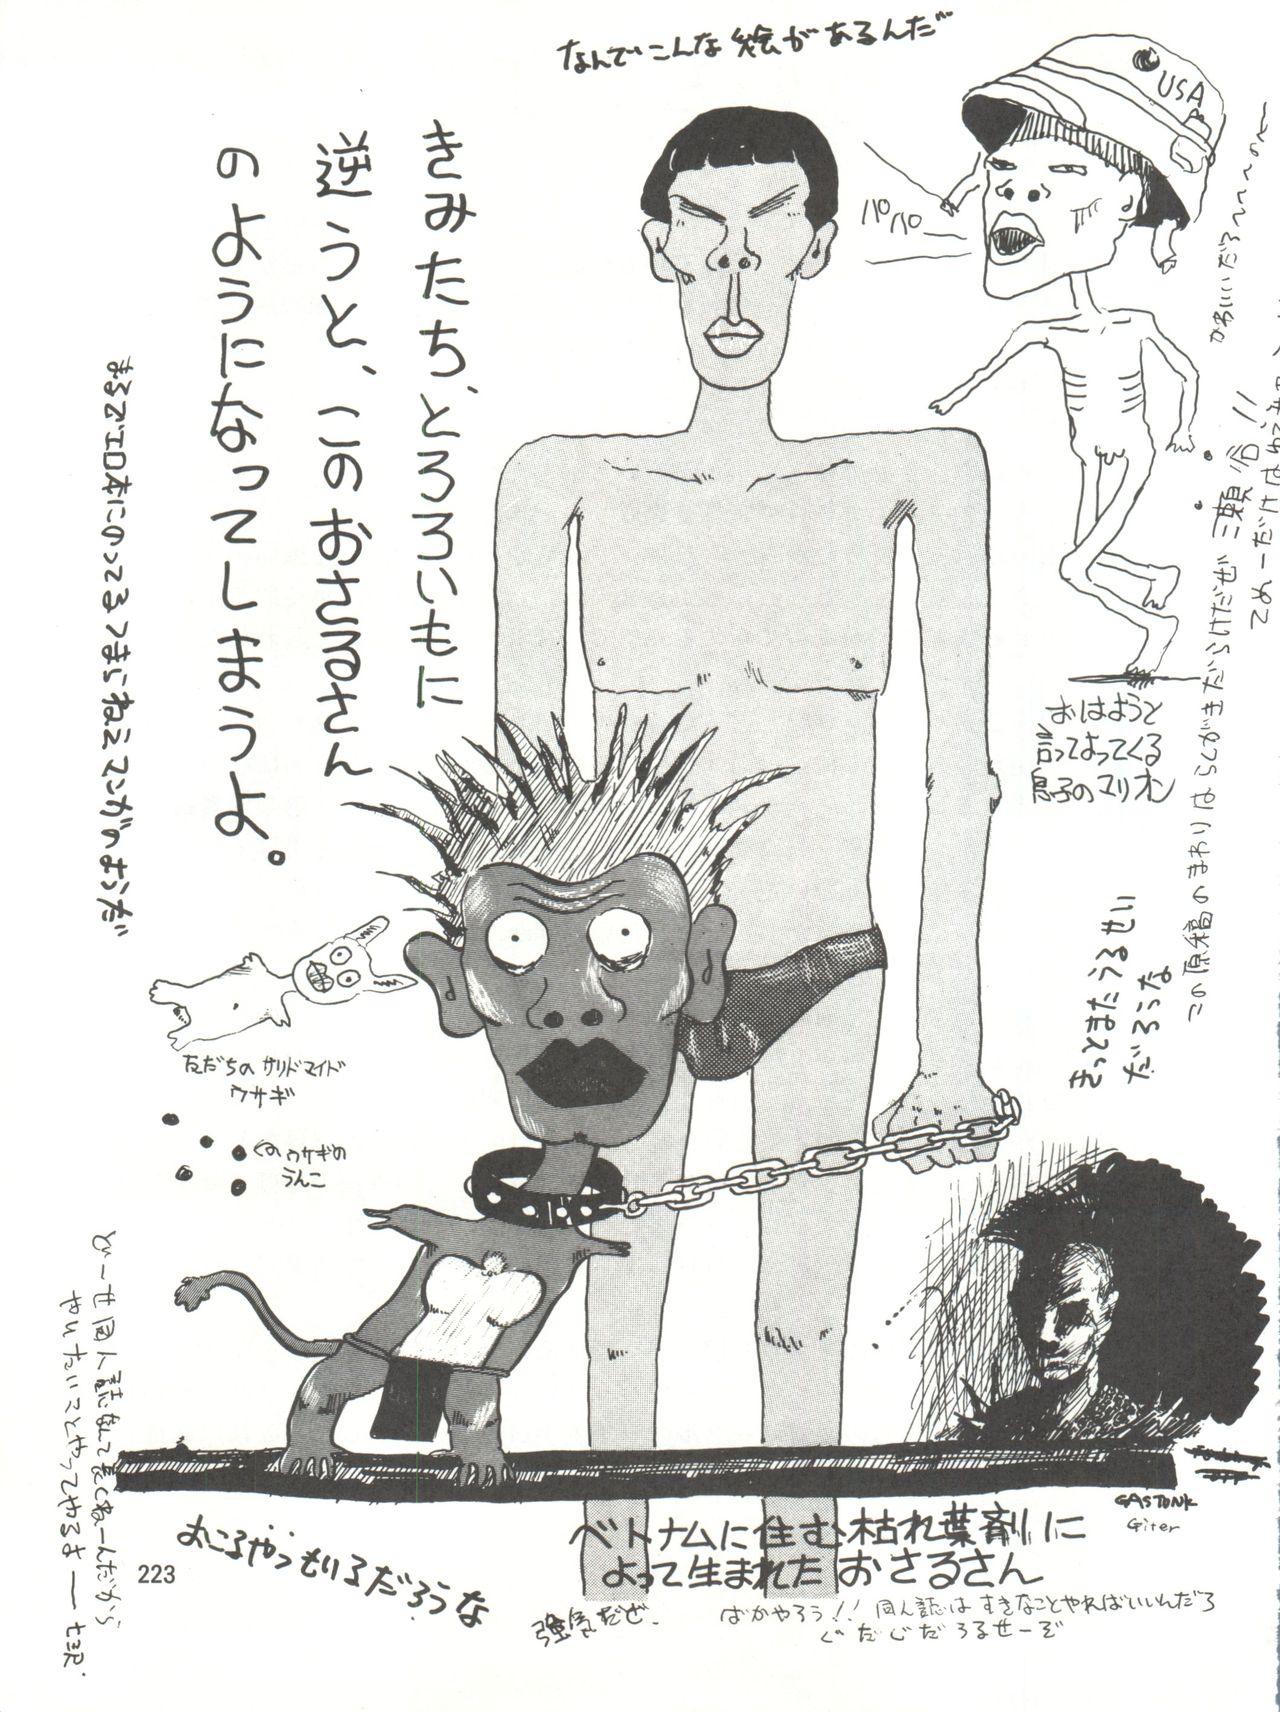 なんでこんな絵があるんだ
USA
パパ
かわいいだろ〜〜〜の〜
きみたち、とろろいもに
逆うと、このおさるさん
のようになってしまうよ。
まるでエロ本にのってるつまらねえマンガのようだ
おはようと
言ってよってくる
息子のマリオン
この原稿のまわりはらくがきだらけだぜ
きっとまたうるせい
だろうな
サリドマイド
ウサギ
ウサギの
うんこ
どーせ同人誌なんて
やりたいことやってやるさ
GASTONK
Giter
ベトナムに住む枯れ葉剤に
よって生まれたおさるさん
おこるやつもいるだろうな
強気だぜ.
ばかやろう!! 同人誌はすきなことやればいいんだろ
ぐだぐだうるせーぞ
223